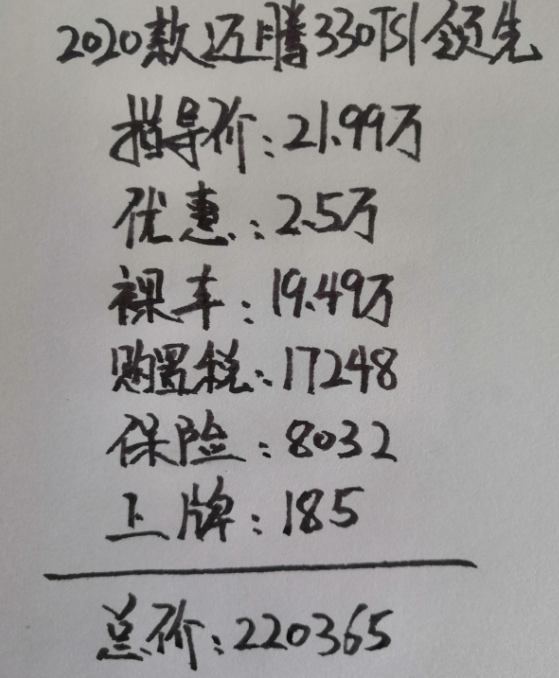 2020款迈腾330TSI领先
指导价:21.99万
优惠:2.5万
裸车:19.49万
购置税:17248
保险:8032
上牌:185
总价:220365